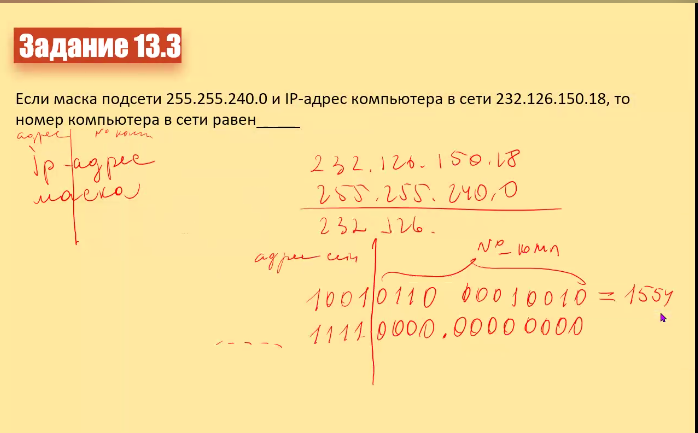 Задание 13.3
Если маска подсети 255.255.240.0 и IP-адрес компьютера в сети 232.126.150.18, то
номер компьютера в сети равен_____
адрес № комп
ip-адрес 232.126.150.18
маска 255.255.240.0
232.126.
адрес сети № комп
10010110 00010010 = 1554
11110000.00000000